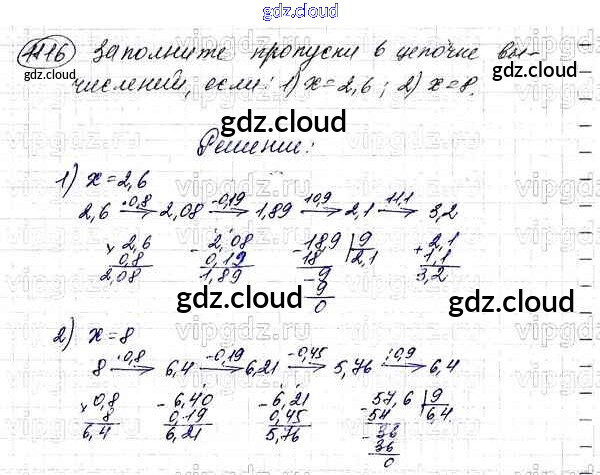 gdz.cloud
1116 Заполните пропуски в цепочке вы-
числений, если: 1) x=2,6; 2) x=8.
gdz.cloud
gdz.cloud
Решение:
1) x=2,6
2,6 ·0,8→ 2,08 -0,19→ 1,89 :0,9→ 2,1 +1,1→ 3,2
× 2,6 - 2,08 - 18,9 | 9 + 2,1
0,8 0,19 18 2,1 1,1
2,08 1,89 - 9 3,2
9
0
gdz.cloud
gdz.cloud
2) x=8
8 ·0,8→ 6,4 -0,19→ 6,21 -0,45→ 5,76 :0,9→ 6,4
× 0,8 - 6,40 - 6,21 - 57,6 | 9
8 0,19 0,45 54 6,4
6,4 6,21 5,76 - 36
36
0
gdz.cloud